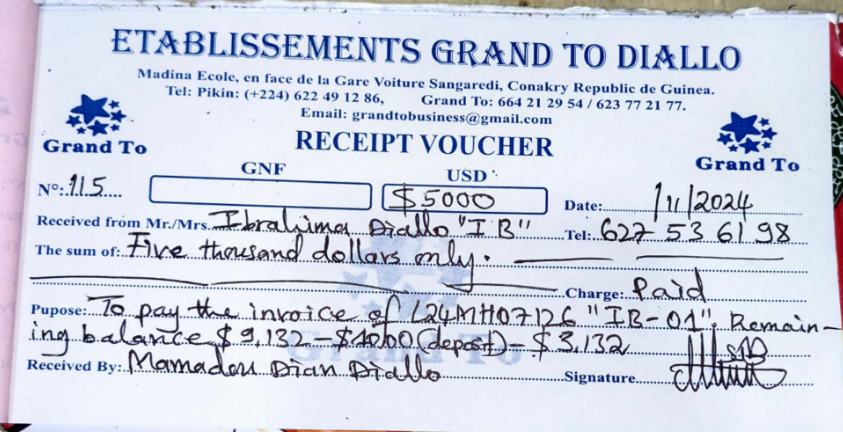 ETABLISSEMENTS GRAND TO DIALLO
Madina Ecole, en face de la Gare Voiture Sangaredi, Conakry Republic de Guinea.
Tel: Pikin: (+224) 622 49 12 86, Grand To: 664 21 29 54 / 623 77 21 77.
Email: grandtobusiness@gmail.com
Grand To RECEIPT VOUCHER Grand To
GNF USD
N°:.115.... $5000 Date: /11/2024
Received from Mr./Mrs. Ibrahima Diallo "IB" Tel: 627 53 61 98
The sum of: Five thousand dollars only.
Charge: Paid
Pupose: To pay the invoice of L24MH07126 "IB-01", Remain-
ing balance $9,132 - (deposit) - $3,132
Received By: Mamadou Dian Diallo Signature